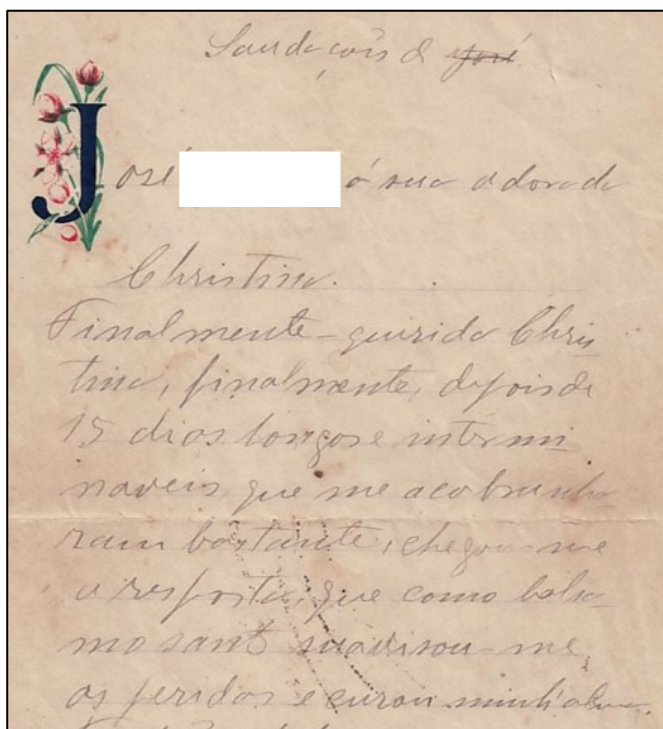 Saudações de José
José á sua adorada
Christina.
Finalmente - querida Chris
tina, finalmente, depois de
15 dias longos e intermi
naveis, que me acabrunha
ram bastante, chegou-me
a resposta, que como balsa
mo sant suavisou-me
as feridas e curou minh'alma.